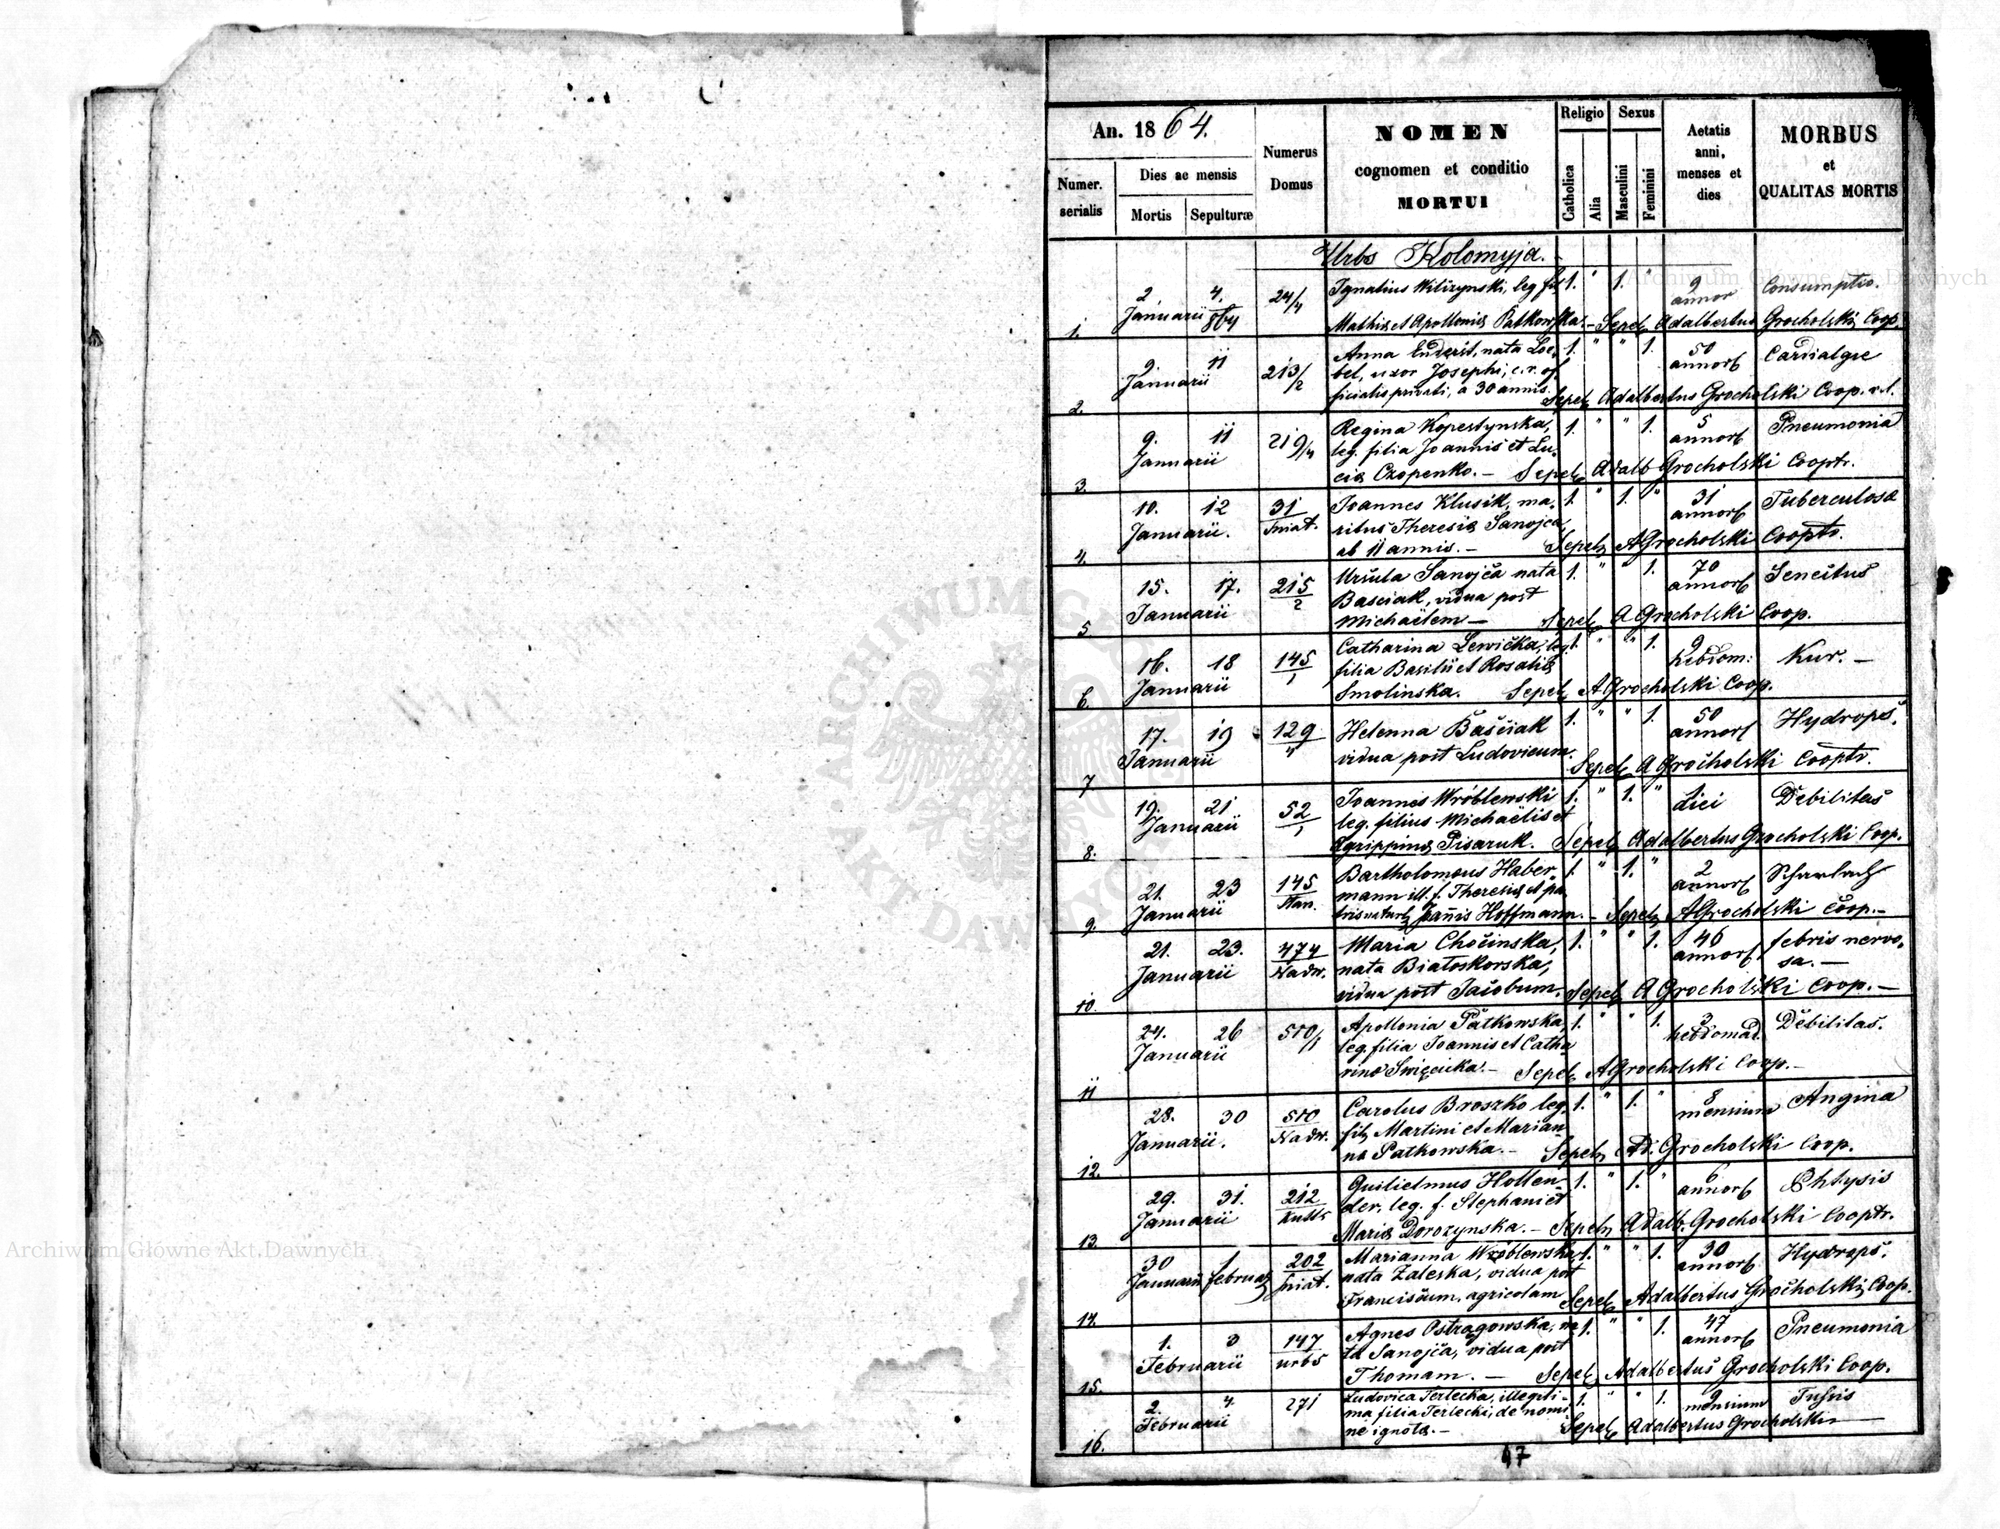 An. 1864.
Numer. serialis
Dies ac mensis
Mortis
Sepulturæ
Numerus Domus
NOMEN
cognomen et conditio
MORTUI
Religio
Catholica
Alia
Sexus
Masculini
Feminini
Aetatis anni, menses et dies
MORBUS
et
QUALITAS MORTIS
Urbs Kolomyja.
1. 2 Januarii 4. 864 24/4 Ignatius Wilczynski, leg fil 1. " 1. " 9 annor Consumptio.
Mathiæ et Apolloniæ Patkowska. – Sepel. Adalbertus Grocholski Coop.
2. 9. Januarii 11 213/2 Anna nata Loe- 1. " " 1. 50 annor Cardialgie
bel, uxor Josephi, c. r. of-
ficialis privati, a 30 annis. Sepel. Adalbertus Grocholski Coop. r. l.
3. 9. Januarii 11 219/4 Regina Kopestynska, 1. " " 1. 5 annor Pneumonia
leg. filia Joannis et Lu-
ciæ Czopenko. – Sepel. Adalb Grocholski Cooptr.
4. 10. Januarii. 12 31 Sniat. Joannes Klusik, ma- 1. " 1. " 31 annor Tuberculosa
ritus Theresiæ Sanojca,
ab 11 annis. – Sepel. A Grocholski Cooptr.
5 15. Januarii 17. 215/2 Ursula Sanojca nata 1. " " 1. 70 annor Senectus
Basciak, vidua post
Michaëlem – Sepel. A Grocholski Coop.
6. 16. Januarii 18 145/1 Catharina Lewicka, leg. 1. " " 1. 9 hebdom: Kur. –
filia Basilii et Rosaliæ
Smolinska. Sepel. A Grocholski Coop.
7. 17. Januarii 19 129/4 Helenna Basciak 1. " " 1. 50 annor Hydrops.
vidua post Ludovicum. Sepel. A Grocholski Cooptr.
8. 19. Januarii 21 52/1 Joannes Wróblewski 1. " 1. " 1 diei Debilitas
leg. filius Michaëlis et
Agrippinæ Pisaruk. Sepel. Adalbertus Grocholski Coop.
9. 21. Januarii 23 145 Stan. Bartholomeus Haber- 1. " 1. " 2 annor Scharlach
mann ill. f. Theresiæ et pa-
tris natur. Joannis Hoffmann. – Sepel. A Grocholski Coop. –
10. 21. Januarii 23. 474 Nadw. Maria Chocinska, 1. " " 1. 46 annor febris nervo-
nata Białoskorska, sa. –
vidua post Jacobum. Sepel. A Grocholski Coop. –
11 24. Januarii 26 510/1 Apollonia Patkowska, 1. " " 1. 3 hebdomad. Debilitas.
leg. filia Joannis et Catha-
rinæ Swięcicka. – Sepel. A Grocholski Coop. –
12. 28. Januarii. 30 510 Nadw. Carolus Broszko leg. 1. " 1. " 8 mensium Angina
fil. Martini et Marian-
næ Patkowska. – Sepel. Ad. Grocholski Coop.
13. 29. Januarii 31. 212 Kutts Guilielmus Hollen- 1. " 1. " 6 annor Phtysis
der, leg. f. Stephani et
Mariæ Dorozynska. – Sepel. Adalb. Grocholski Cooptr.
14. 30 Januarii 1 februar 202 Sniat. Marianna Wróblewska, 1. " " 1. 30 annor Hydrops.
nata Zaleska, vidua post
Franciscum, agricolam Sepel. Adalbertus Grocholski, Coop.
15. 1. Februarii 3 147 urbs Agnes Ostragowska, na- 1. " " 1. 47 annor Pneumonia
ta Sanojca, vidua post
Thomam. – Sepel. Adalbertus Grocholski Coop.
16. 2. Februarii 4 271 Ludovica Terlecka, illegiti- 1. " " 1. 9 mensium Tussis
ma filia Terlecki, de nomi-
ne ignotæ. – Sepel. Adalbertus Grocholski
47
Archiwum Główne Akt Dawnych
Archiwum Główne Akt Dawnych
ARCHIWUM GŁÓWNE AKT DAWNYCH